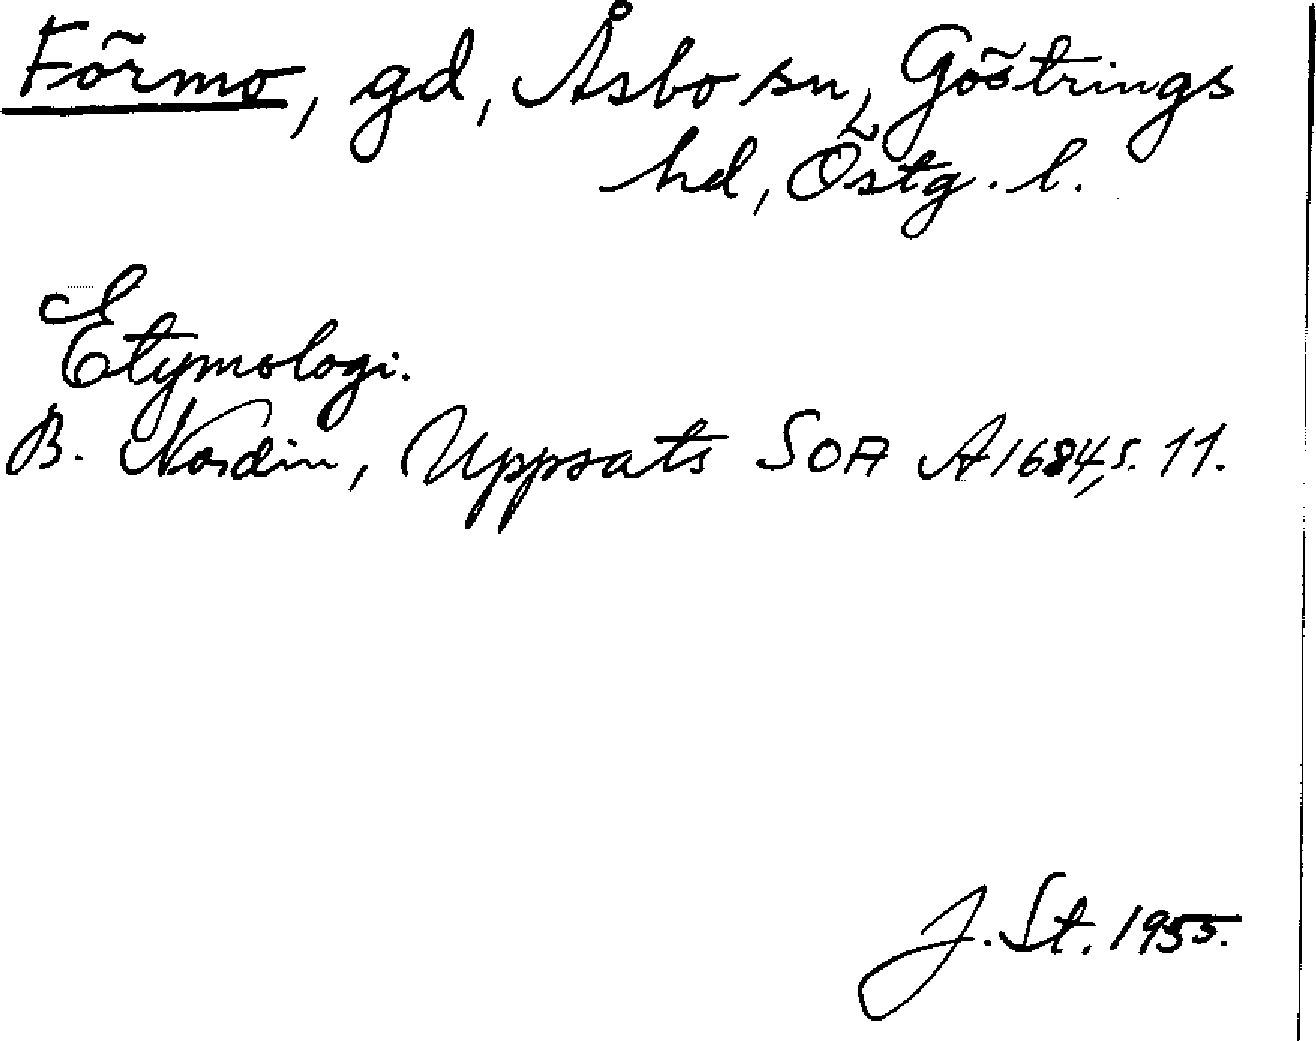 Förmo, gd, Åsbo sn, Göstrings
hd, Östg. l.
Etymologi.
B. Nordin, Uppsats SOA A1684, s. 11.
J. St. 1955.